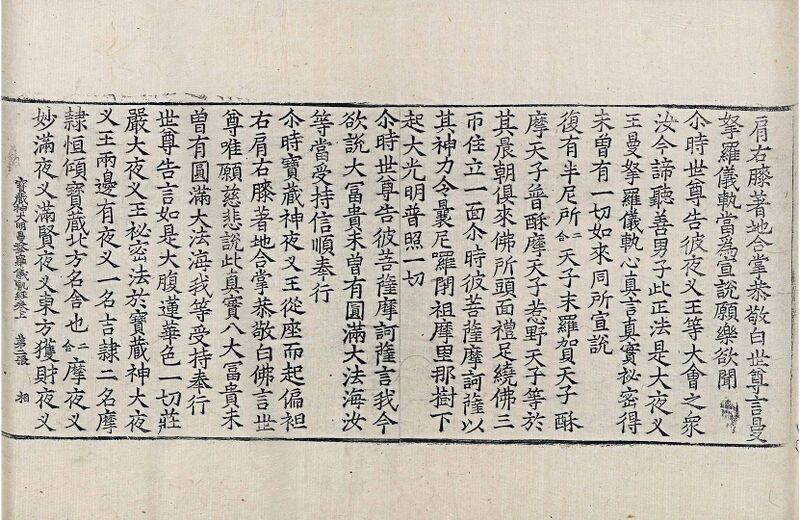 肩右膝著地合掌恭敬白世尊言曼
拏羅儀軌當爲宣說願樂欲聞
尒時世尊告彼夜叉王等大會之衆
汝今諦聽善男子此正法是大夜叉
王曼拏羅儀軌心真言真實祕密得
未曽有一切如來同所宣說
復有半尼所二合天子末羅賀天子酥
摩天子普酥摩天子惹野天子等於
其晨朝俱來佛所頭面禮足繞佛三
帀住立一面尒時彼菩薩摩訶薩以
其神力令曩尼羅閉祖摩里那樹下
起大光明普照一切
尒時世尊告彼菩薩摩訶薩言我今
欲說大冨貴未曽有圓滿大法海汝
等當受持信順奉行
尒時寶藏神夜叉王從座而起偏袒
右肩右膝著地合掌恭敬白佛言世
尊唯願慈悲說此真實八大冨貴未
曽有圓滿大法海我等受持奉行
世尊告言如是大腹蓮華色一切莊
嚴大夜叉王祕密法於寶藏神大夜
叉王兩邊有夜叉一名吉隷二名摩
隷恒傾寶藏北方名舍也二合摩夜叉
妙滿夜叉滿賢夜叉東方獲財夜叉
寶藏神大明曼拏羅儀軌經卷上 第二張 相